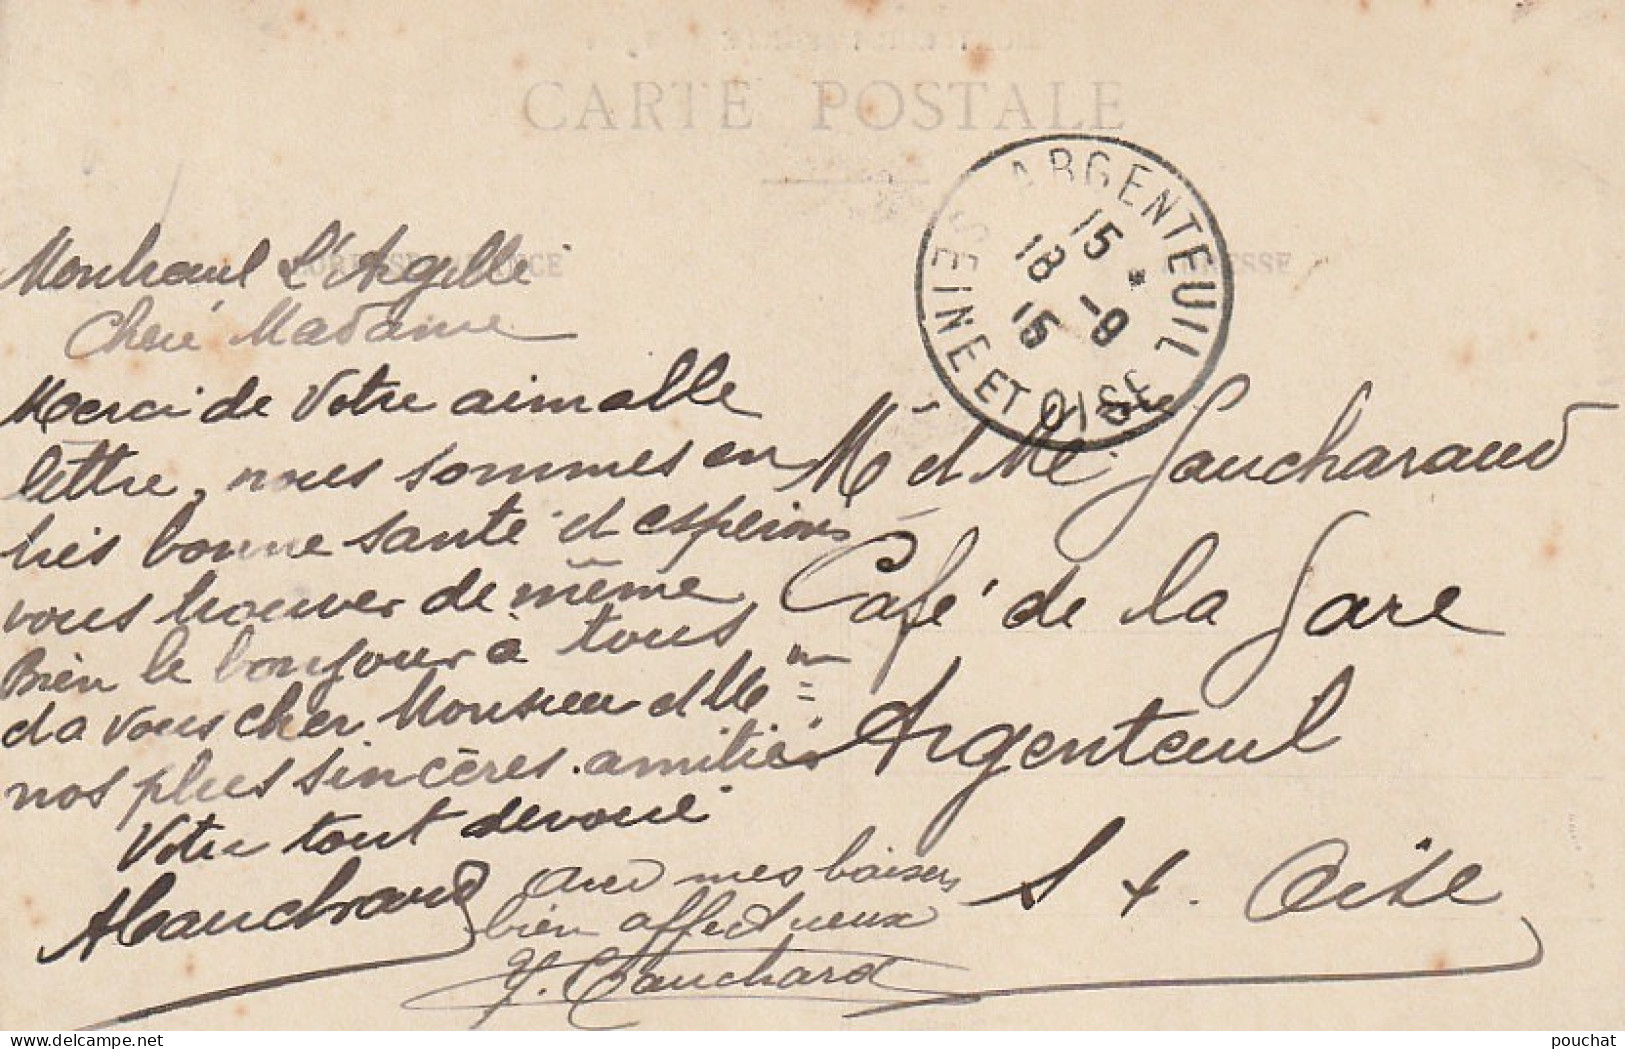 CARTE POSTALE
ARGENTEUIL
15 *
18 -9
15
SEINE ET OISE
CORRESPONDANCE
ADRESSE
Montreuil L'Argillé
Cheré Madame
Merci de Votre aimable
lettre, nous sommes en
très bonne santé et espérons
vous trouver de même
Bien le bonjour à tous
et a vous cher Monsieur et Me
nos plus sincères amitiés
Votre tout dévoué
Avec mes baisers
bien affectueux
M et Me Gaucharaud
Café de la Gare
Argenteuil
S &. Oise
pouchat